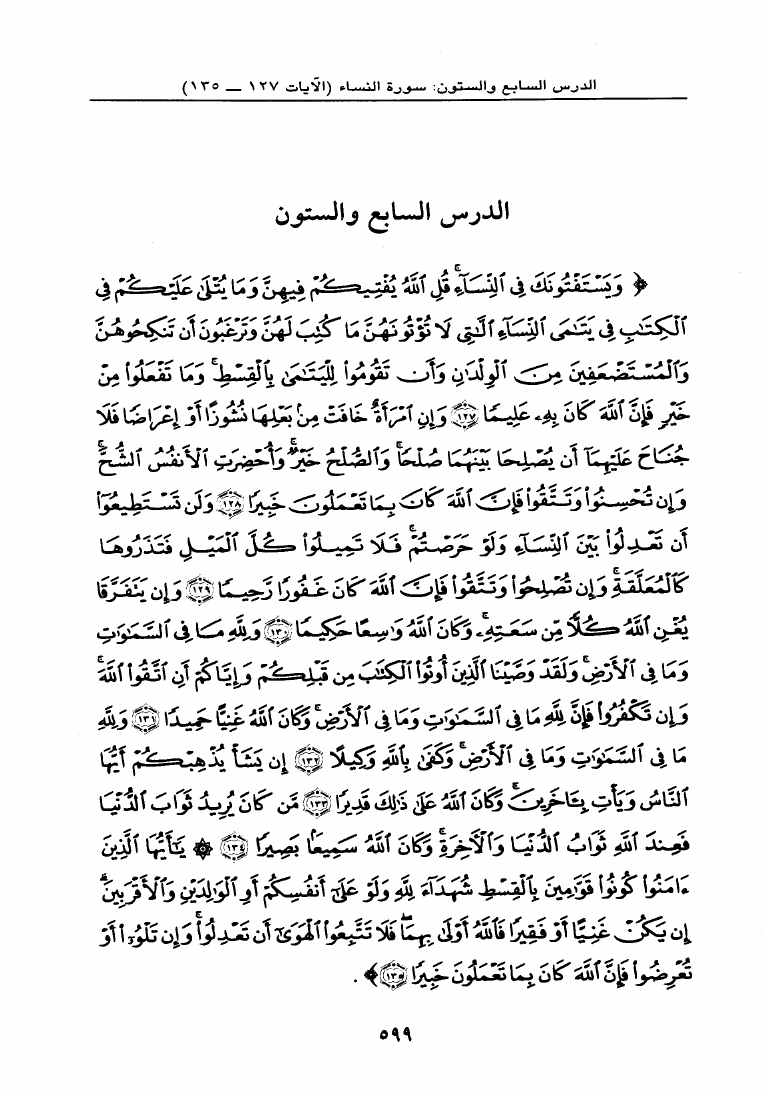 الدرس السابع والستون: سورة النساء (الآيات ١٢٧ — ١٣٥)
الدرس السابع والستون
﴿ وَيَسْتَفْتُونَكَ فِي ٱلنِّسَآءِۖ قُلِ ٱللَّهُ يُفْتِيكُمْ فِيهِنَّ وَمَا يُتْلَىٰ عَلَيْكُمْ فِي
ٱلْكِتَٰبِ فِي يَتَٰمَى ٱلنِّسَآءِ ٱلَّٰتِي لَا تُؤْتُونَهُنَّ مَا كُتِبَ لَهُنَّ وَتَرْغَبُونَ أَن تَنكِحُوهُنَّ
وَٱلْمُسْتَضْعَفِينَ مِنَ ٱلْوِلْدَٰنِ وَأَن تَقُومُوا۟ لِلْيَتَٰمَىٰ بِٱلْقِسْطِۚ وَمَا تَفْعَلُوا۟ مِنْ
خَيْرٍ فَإِنَّ ٱللَّهَ كَانَ بِهِۦ عَلِيمًا ۝١٢٧ وَإِنِ ٱمْرَأَةٌ خَافَتْ مِنۢ بَعْلِهَا نُشُوزًا أَوْ إِعْرَاضًا فَلَا
جُنَاحَ عَلَيْهِمَآ أَن يُصْلِحَا بَيْنَهُمَا صُلْحًاۚ وَٱلصُّلْحُ خَيْرٌۗ وَأُحْضِرَتِ ٱلْأَنفُسُ ٱلشُّحَّۚ
وَإِن تُحْسِنُوا۟ وَتَتَّقُوا۟ فَإِنَّ ٱللَّهَ كَانَ بِمَا تَعْمَلُونَ خَبِيرًا ۝١٢٨ وَلَن تَسْتَطِيعُوٓا۟
أَن تَعْدِلُوا۟ بَيْنَ ٱلنِّسَآءِ وَلَوْ حَرَصْتُمْۖ فَلَا تَمِيلُوا۟ كُلَّ ٱلْمَيْلِ فَتَذَرُوهَا
كَٱلْمُعَلَّقَةِۚ وَإِن تُصْلِحُوا۟ وَتَتَّقُوا۟ فَإِنَّ ٱللَّهَ كَانَ غَفُورًا رَّحِيمًا ۝١٢٩ وَإِن يَتَفَرَّقَا
يُغْنِ ٱللَّهُ كُلًّا مِّن سَعَتِهِۦۚ وَكَانَ ٱللَّهُ وَٰسِعًا حَكِيمًا ۝١٣٠ وَلِلَّهِ مَا فِي ٱلسَّمَٰوَٰتِ
وَمَا فِي ٱلْأَرْضِۗ وَلَقَدْ وَصَّيْنَا ٱلَّذِينَ أُوتُوا۟ ٱلْكِتَٰبَ مِن قَبْلِكُمْ وَإِيَّاكُمْ أَنِ ٱتَّقُوا۟ ٱللَّهَۚ
وَإِن تَكْفُرُوا۟ فَإِنَّ لِلَّهِ مَا فِي ٱلسَّمَٰوَٰتِ وَمَا فِي ٱلْأَرْضِۚ وَكَانَ ٱللَّهُ غَنِيًّا حَمِيدًا ۝١٣١ وَلِلَّهِ
مَا فِي ٱلسَّمَٰوَٰتِ وَمَا فِي ٱلْأَرْضِۚ وَكَفَىٰ بِٱللَّهِ وَكِيلًا ۝١٣٢ إِن يَشَأْ يُذْهِبْكُمْ أَيُّهَا
ٱلنَّاسُ وَيَأْتِ بِـَٔاخَرِينَۚ وَكَانَ ٱللَّهُ عَلَىٰ ذَٰلِكَ قَدِيرًا ۝١٣٣ مَّن كَانَ يُرِيدُ ثَوَابَ ٱلدُّنْيَا
فَعِندَ ٱللَّهِ ثَوَابُ ٱلدُّنْيَا وَٱلْـَٔاخِرَةِۚ وَكَانَ ٱللَّهُ سَمِيعًۢا بَصِيرًا ۝١٣٤ ۞ يَٰٓأَيُّهَا ٱلَّذِينَ
ءَامَنُوا۟ كُونُوا۟ قَوَّٰمِينَ بِٱلْقِسْطِ شُهَدَآءَ لِلَّهِ وَلَوْ عَلَىٰٓ أَنفُسِكُمْ أَوِ ٱلْوَٰلِدَيْنِ وَٱلْأَقْرَبِينَۚ
إِن يَكُنْ غَنِيًّا أَوْ فَقِيرًا فَٱللَّهُ أَوْلَىٰ بِهِمَاۖ فَلَا تَتَّبِعُوا۟ ٱلْهَوَىٰٓ أَن تَعْدِلُوا۟ۚ وَإِن تَلْوُۥٓا۟ أَوْ
تُعْرِضُوا۟ فَإِنَّ ٱللَّهَ كَانَ بِمَا تَعْمَلُونَ خَبِيرًا ۝١٣٥ ﴾ .
٥٩٩